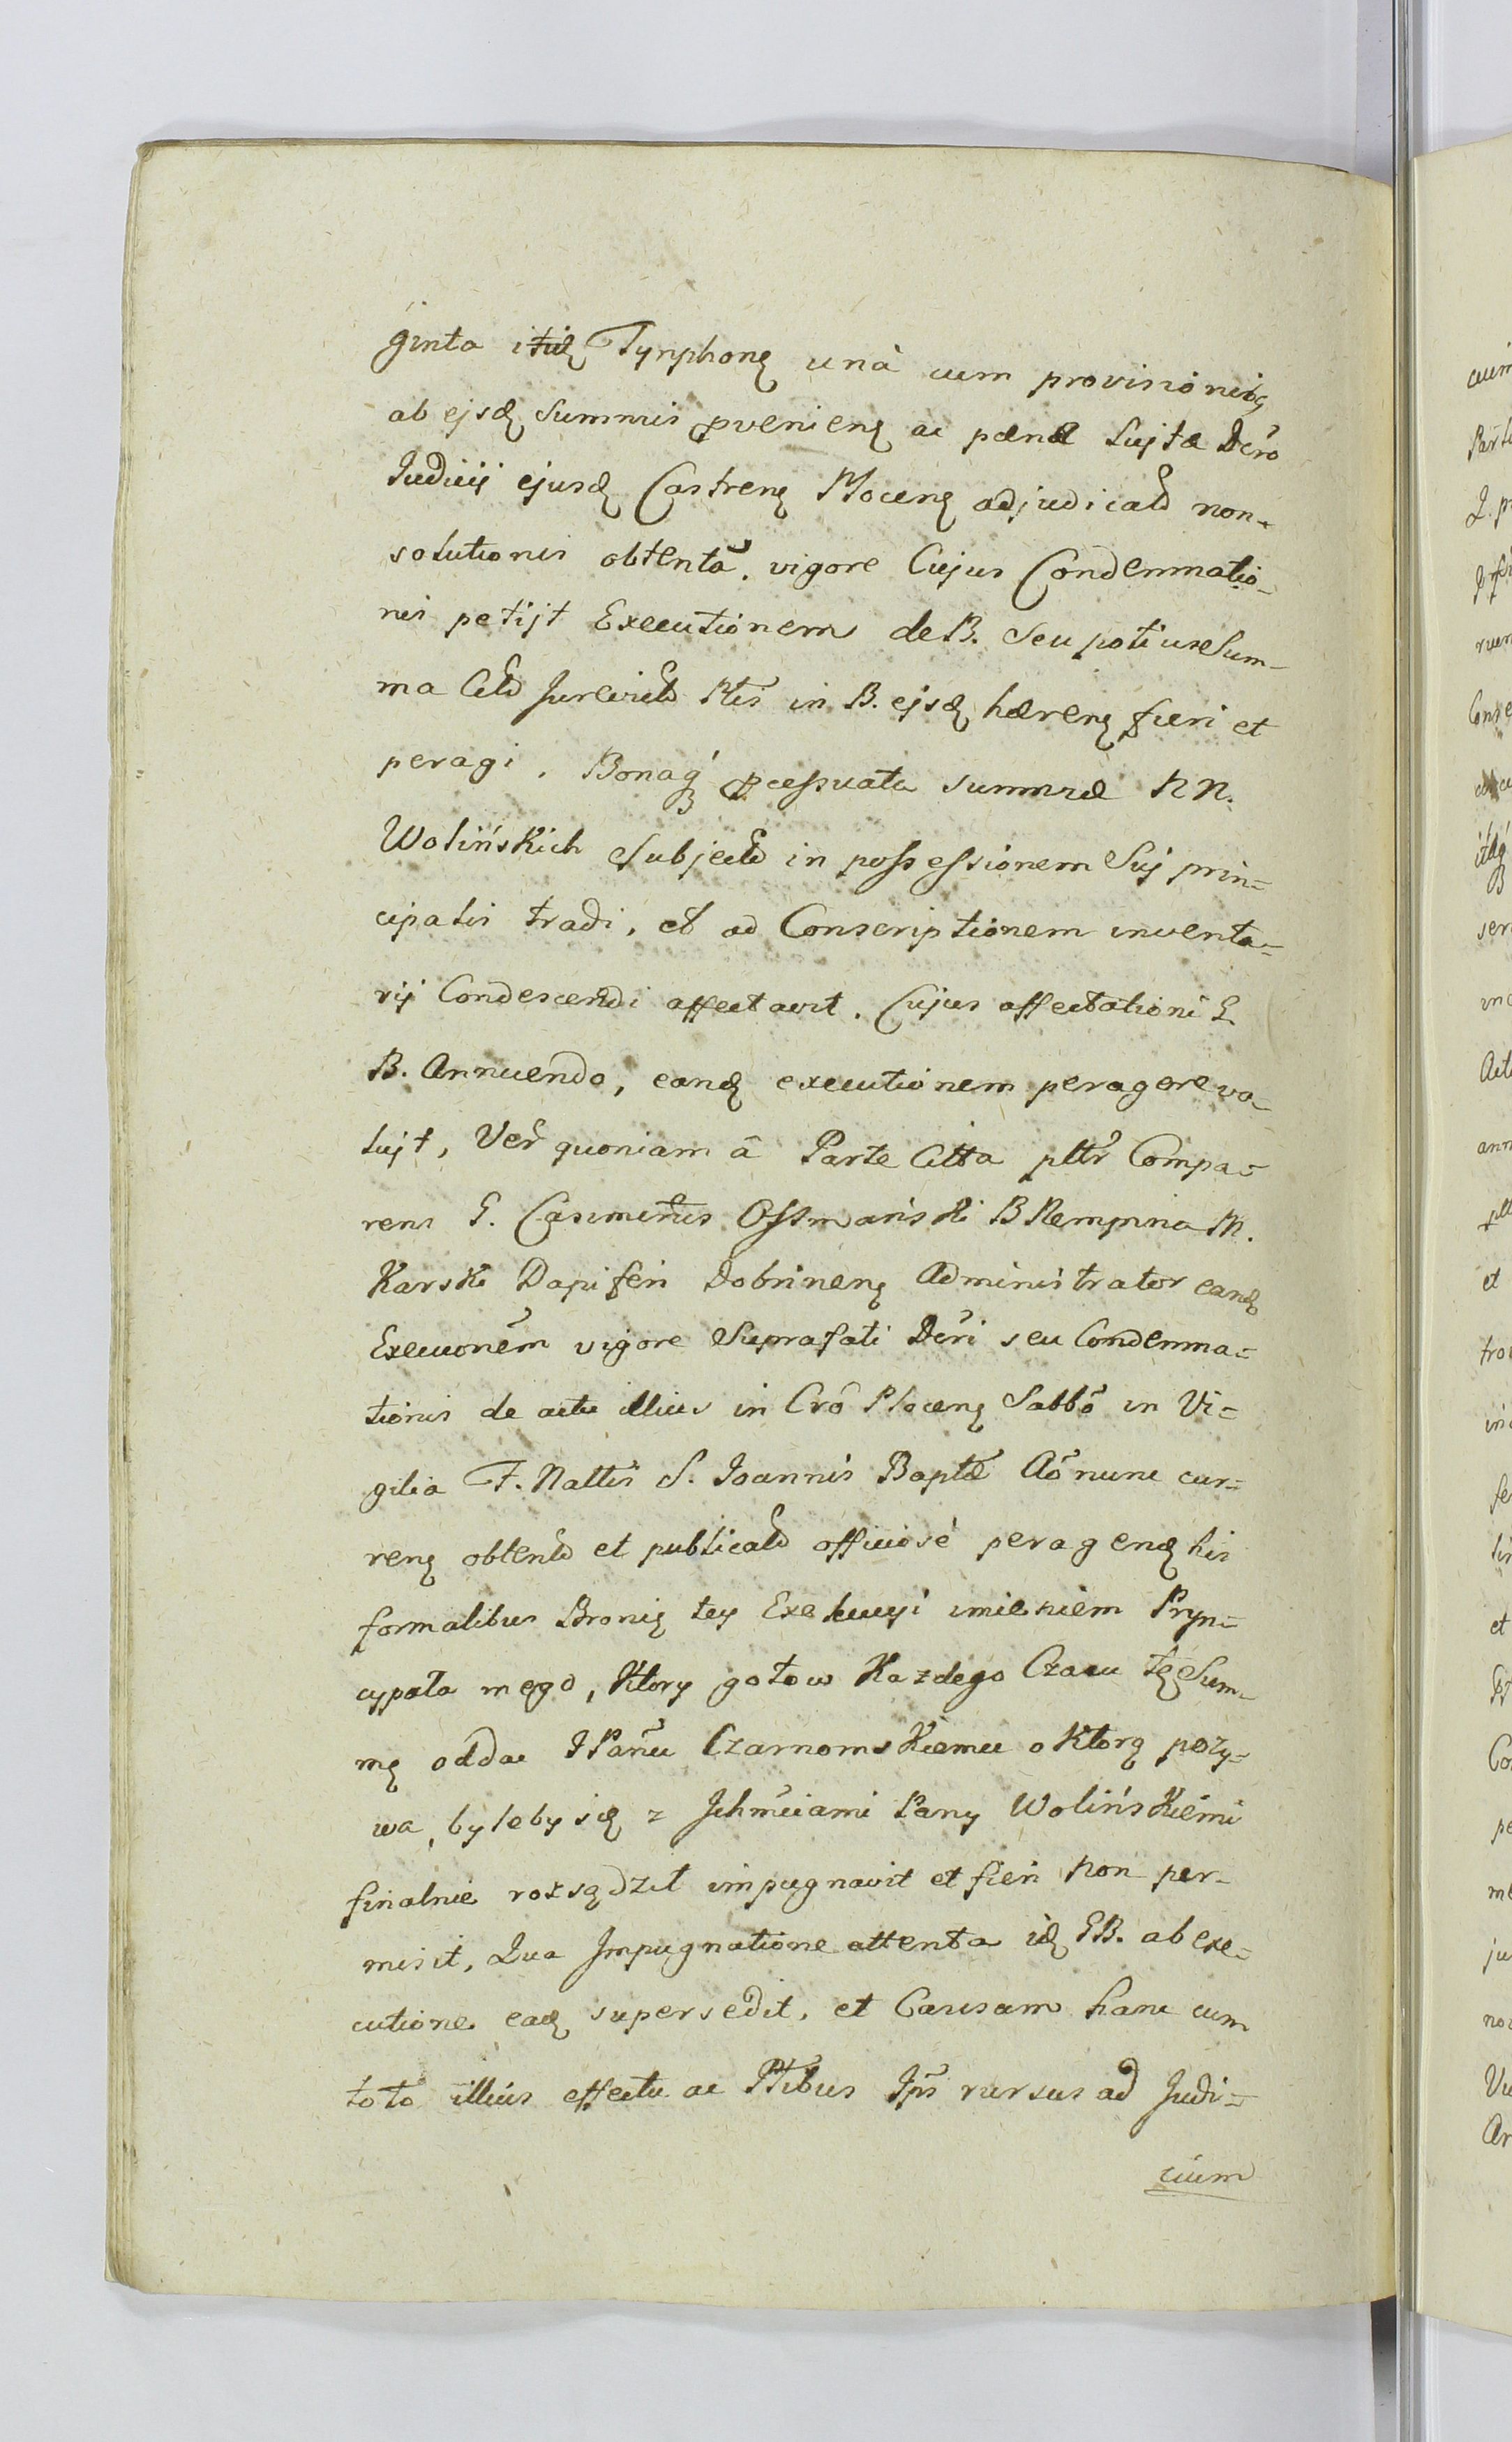 ginta itidę Tynphonę unà cum provisionibꝫ
ab ejsdę Summis pvenienę ac pænæ Lujtæ Dcro
Judicij ejusdę Castrenę Plocenę adjudicatd non-
solutionis obtentã. vigore Cujus Condemnatio-
nis petijt Executionem de B. seu potius Sum-
ma Citd Jurevictd Ptis in B. ejsdę hærenę fieri et
peragi. Bonaqꝫ pcessuata summæ NN.
Wolińskich Subjectd in possessionem Suj prin-
cipalis tradi, et ad Conscriptionem inventa-
rij Condescendi affectavit. Cujus affectationi G
B. Annuendo, eandę executionem peragere vo-
lujt, Ver̃ quoniam â Parte Citta pltr̃ Compa-
rens G. Casimirus Ossmański B Rempina M.
Karski Dapiferi Dobrinenę Administrator eandę
Execuoñem vigore Suprafati Dcri seu Condemna-
tionis de actu illius in Crõ Plocenę Sabbõ in Vi-
gilia F. Nattis S. Joannis Baptæ Aõ nunc cur-
renę obtentd et publicatd officiosè peragendę his
formalibus Bronię tey Exekucyi imieniem Pryn-
cypała męgo, Ktory gotow Kazdego Czasu tę Sum-
mę oddac JPañu Czarnomskiemu o Ktorą pozy-
wa, byleby się z Jchm̃ciami Pany Wolińskiemi
finalnie rozsądził impugnavit et fieri non per-
misit, Qua Impugnatione attenta idę GB. ab exe-
cutione eadę supersedit, et Causam hanc cum
toto illius effectu ac Ptibus Ip̃s rursus ad Judi-
cium